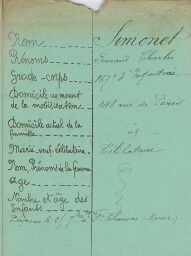 Nom Simonet
Prénoms Fernand Charles
Grade - corps 167e d'Infanterie
Domicile au moment
de la mobilisation 148 rue de
Domicile actuel de la
famille id
Marié, veuf, célibataire Célibataire
Nom, Prénoms de la femme
Age
Nombre et âge des
Enfants